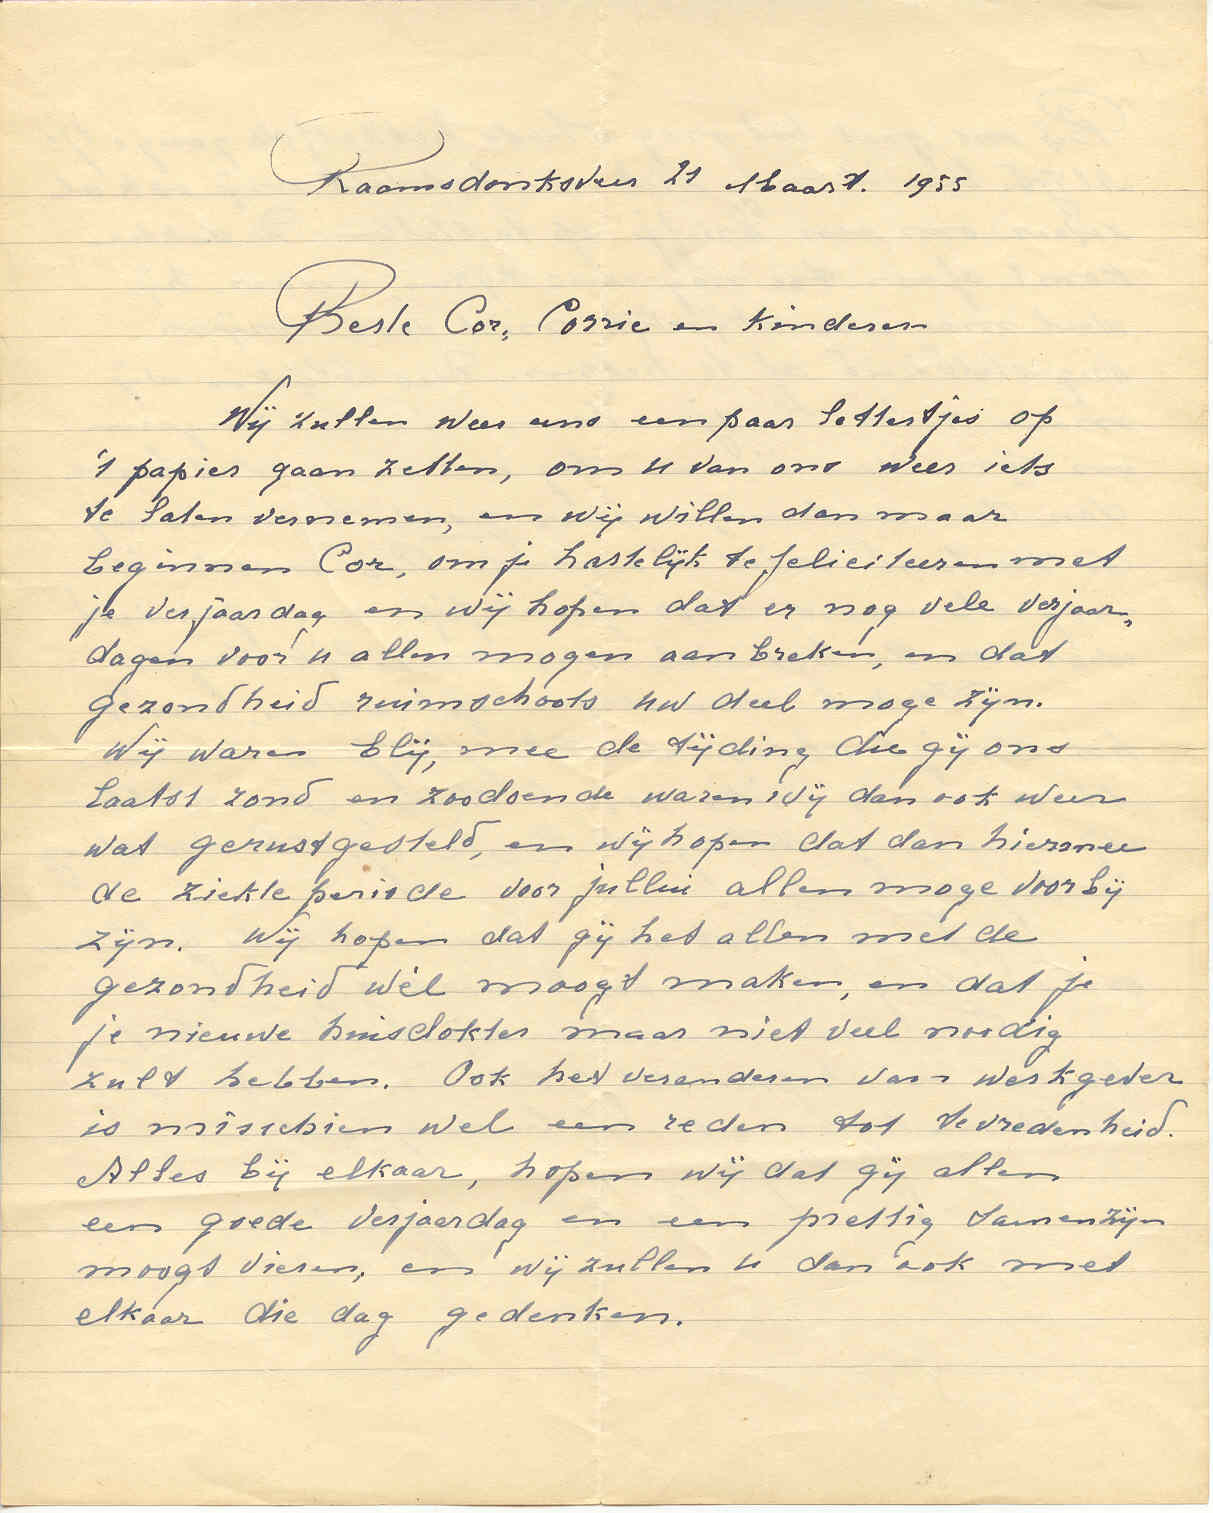 Raamsdonksveer 21 Maart. 1955
Beste Cor, Corrie en kinderen
Wij zullen weer eens een paar lettertjes op
't papier gaan zetten, om u van ons weer iets
te laten vernemen, en wij willen dan maar
beginnen Cor, om je hartelijk te feliciteeren met
je verjaardag en wij hopen dat er nog vele verjaar„
dagen voor u allen mogen aanbreken, en dat
gezondheid ruimschoots uw deel moge zijn.
Wij waren blij, mee de tijding die gij ons
laatst zond en zoodoende waren wij dan ook weer
wat gerustgesteld, en wij hopen dat dan hiermee
de ziekte periode voor jullie allen moge voorbij
zijn. Wij hopen dat gij het allen met de
gezondheid wèl moogt maken, en dat je
je nieuwe huisdokter maar niet veel noodig
zult hebben. Ook het veranderen van werkgever
is misschien wel een reden tot tevredenheid.
Alles bij elkaar, hopen wij dat gij allen
een goede verjaardag en een prettig samenzijn
moogt vieren, en wij zullen u dan ook met
elkaar die dag gedenken.